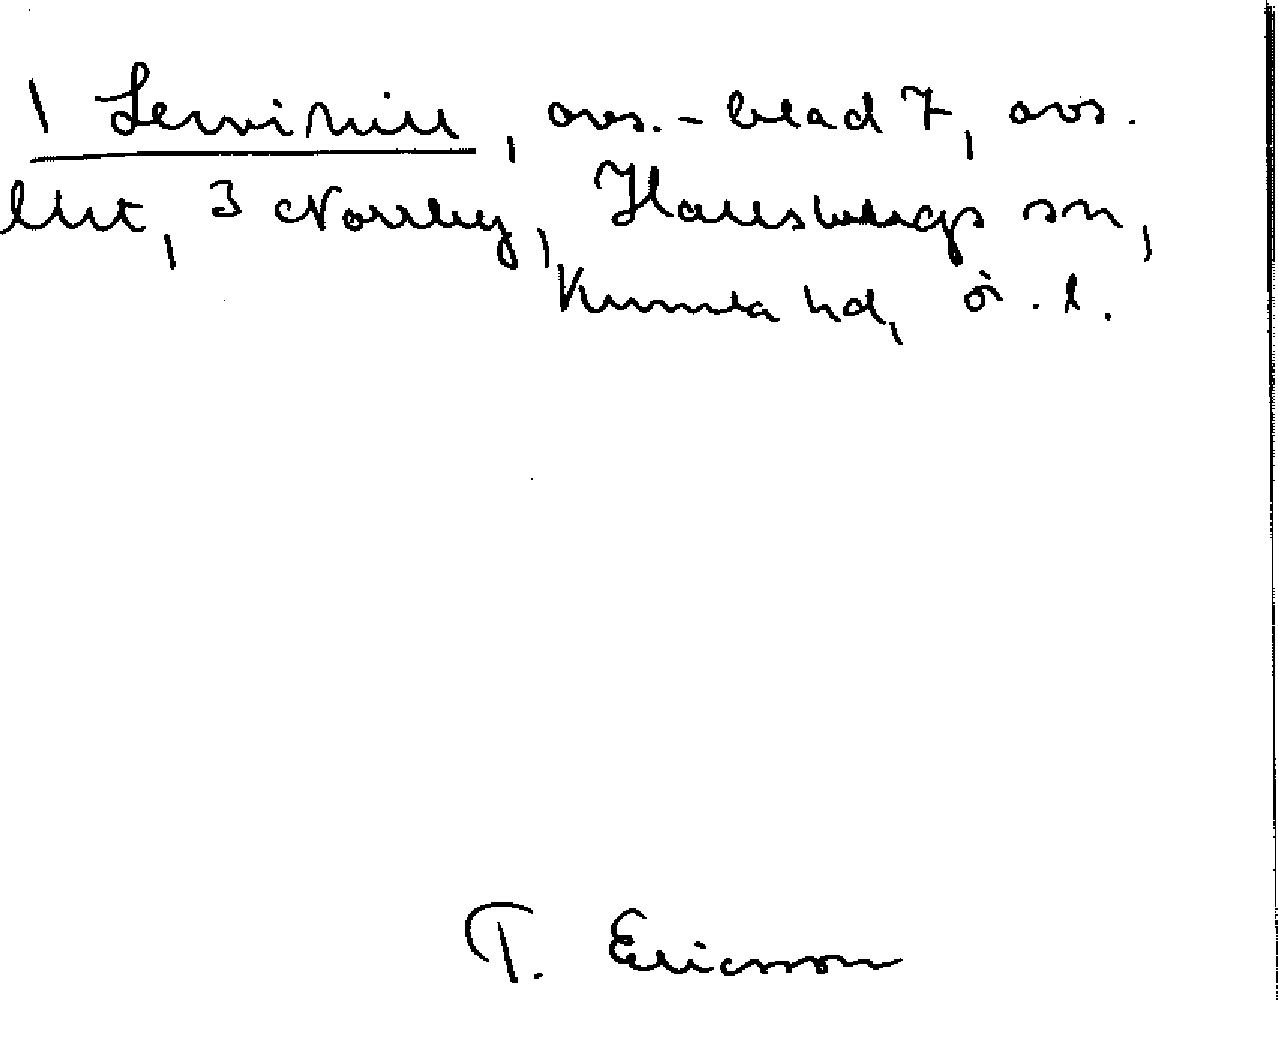 1 , avs.-blad 7, avs.
3 Norrby, Hallsbergs sn,
Kumla hd, ö. l.
T. Ericsson